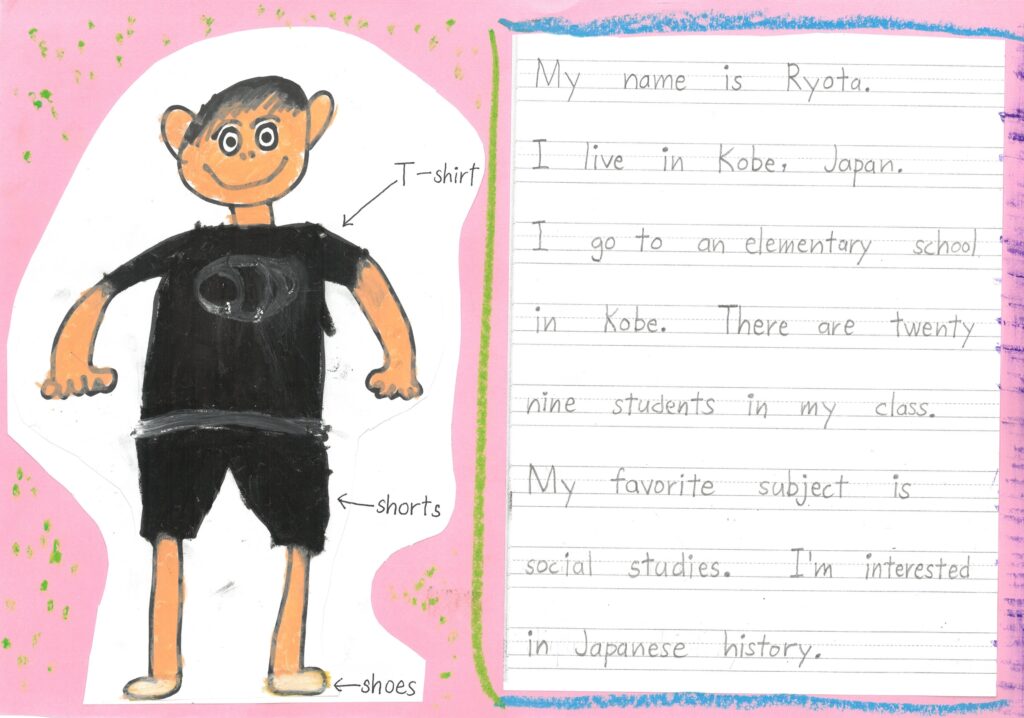 T-shirt
shorts
shoes
My name is Ryota.
I live in Kobe, Japan.
I go to an elementary school
in Kobe. There are twenty
nine students in my class.
My favorite subject is
social studies. I'm interested
in Japanese history.